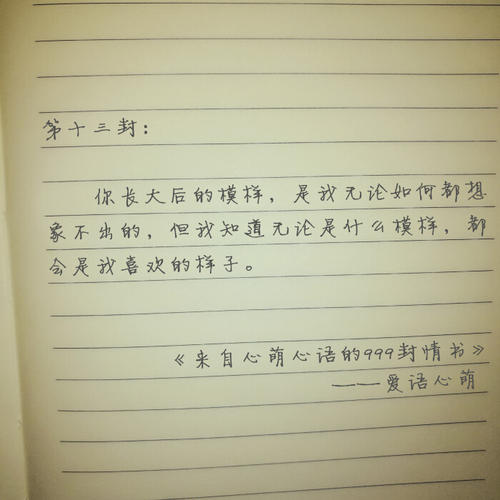 第十三封：
你长大后的模样，是我无论如何都想
象不出的，但我知道无论是什么模样，都
会是我喜欢的样子。
《来自心萌心语的999封情书》
——爱语心萌